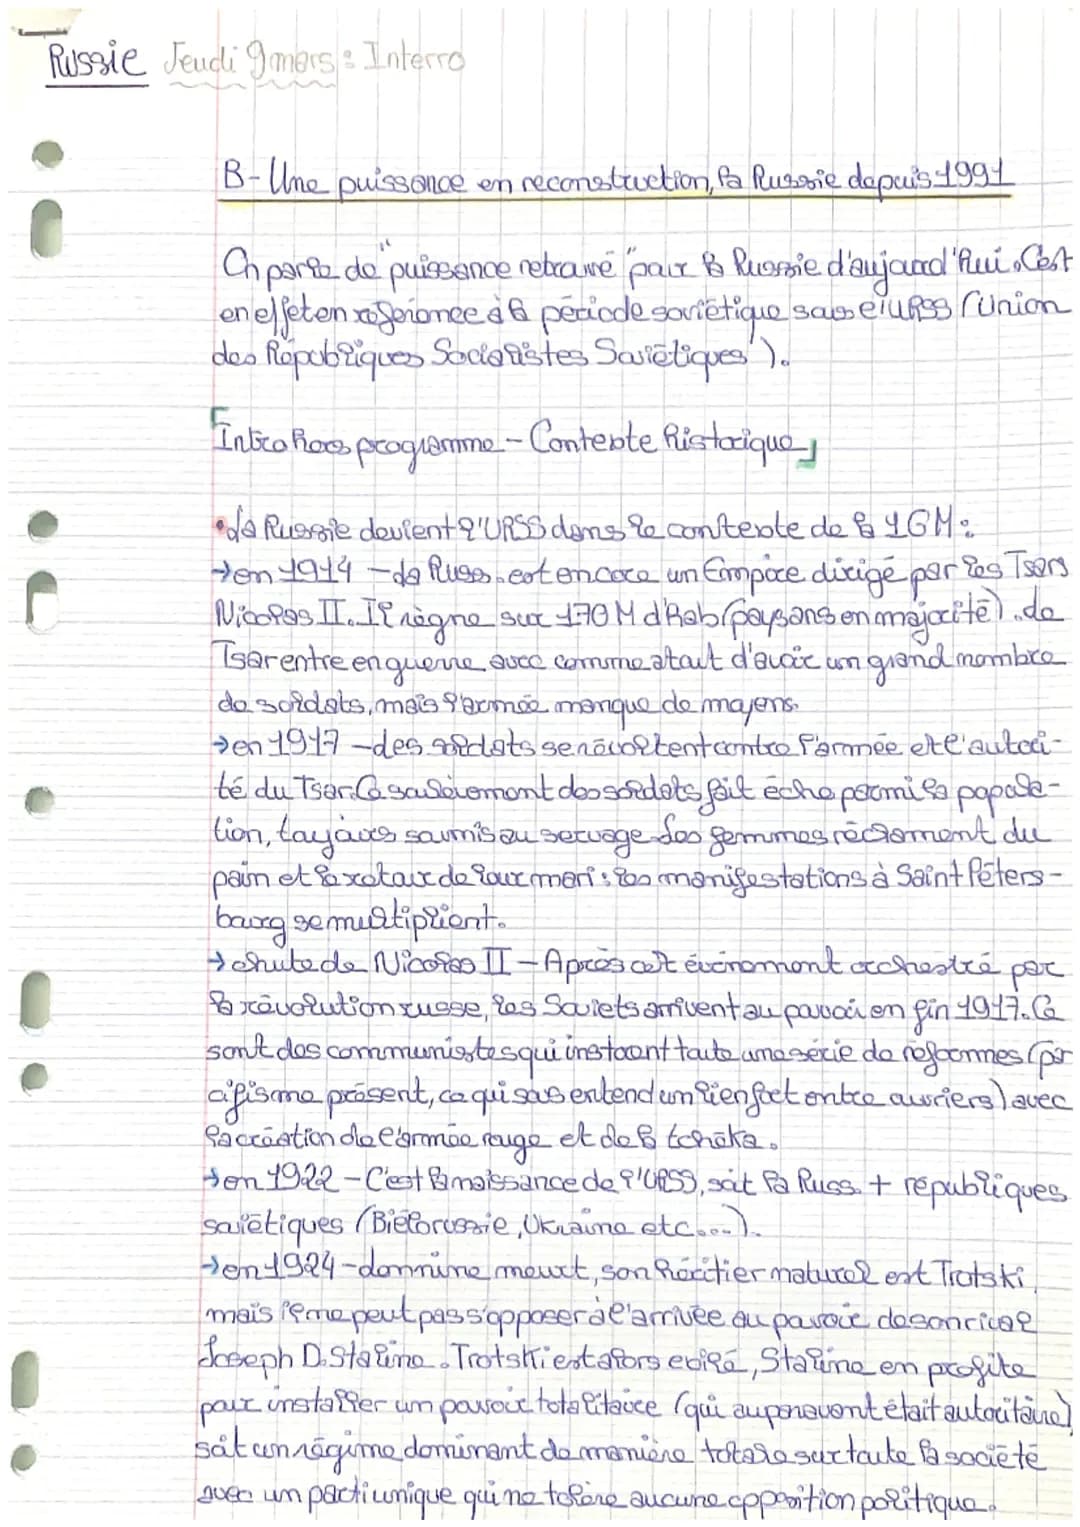 Russie Jeudi 9 mars : Interro
B- Une puissance en reconstruction, la Russie depuis 1991
On parle de "puissance retrouvé" pour la Russie d'aujourd'hui. C'est
en effet en référence à la période soviétique sous l'URSS ("Union
des Républiques Socialistes Soviétiques").
Intro hors programme - Contexte historique
• La Russie devient l'URSS dans le contexte de la 1GM :
→ en 1914 - La Russ. est encore un Empire dirigé par les Tsars
Nicolas II. Il règne sur 170 M d'hab (paysans en majorité). Le
Tsar entre en guerre avec comme atout d'avoir un grand nombre
de soldats, mais l'armée manque de moyens.
→ en 1917 - des soldats se révoltent contre l'armée et l'autori-
té du Tsar. Ce soulèvement des soldats fait écho parmi la popula-
tion, toujours soumis au servage. Les femmes réclament du
pain et le retour de leur mari : les manifestations à Saint Péters-
bourg se multiplient.
→ chute de Nicolas II - Après cet événement orchestré par
la révolution russe, les Soviets arrivent au pouvoir en fin 1917. Ce
sont des communistes qui instaurent toute une série de réformes (pa
cifisme présent, ce qui sous entend un lien fort entre ouvriers) avec
la création de l'armée rouge et de la tchéka.
→ en 1922 - C'est la naissance de l'URSS, soit la Russ. + républiques
soviétiques (Biélorussie, Ukraine etc...).
→ en 1924 - meurt, son héritier naturel est Trotski
mais il ne peut pas s'opposer à l'arrivée au pouvoir de son rival
Joseph D. Staline. Trotski est alors exilé, Staline en profite
pour installer un pouvoir totalitaire (qui auparavant était autoritaire)
soit un régime dominant de manière totale sur toute la société
avec un parti unique qui ne tolère aucune opposition politique.